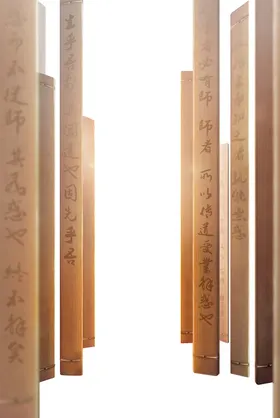 之者 孰能無惑
者必有師 師者 所以傳道受業解惑也
生乎吾前 聞道也固先乎吾
而不從師 其為惑也 終不解矣